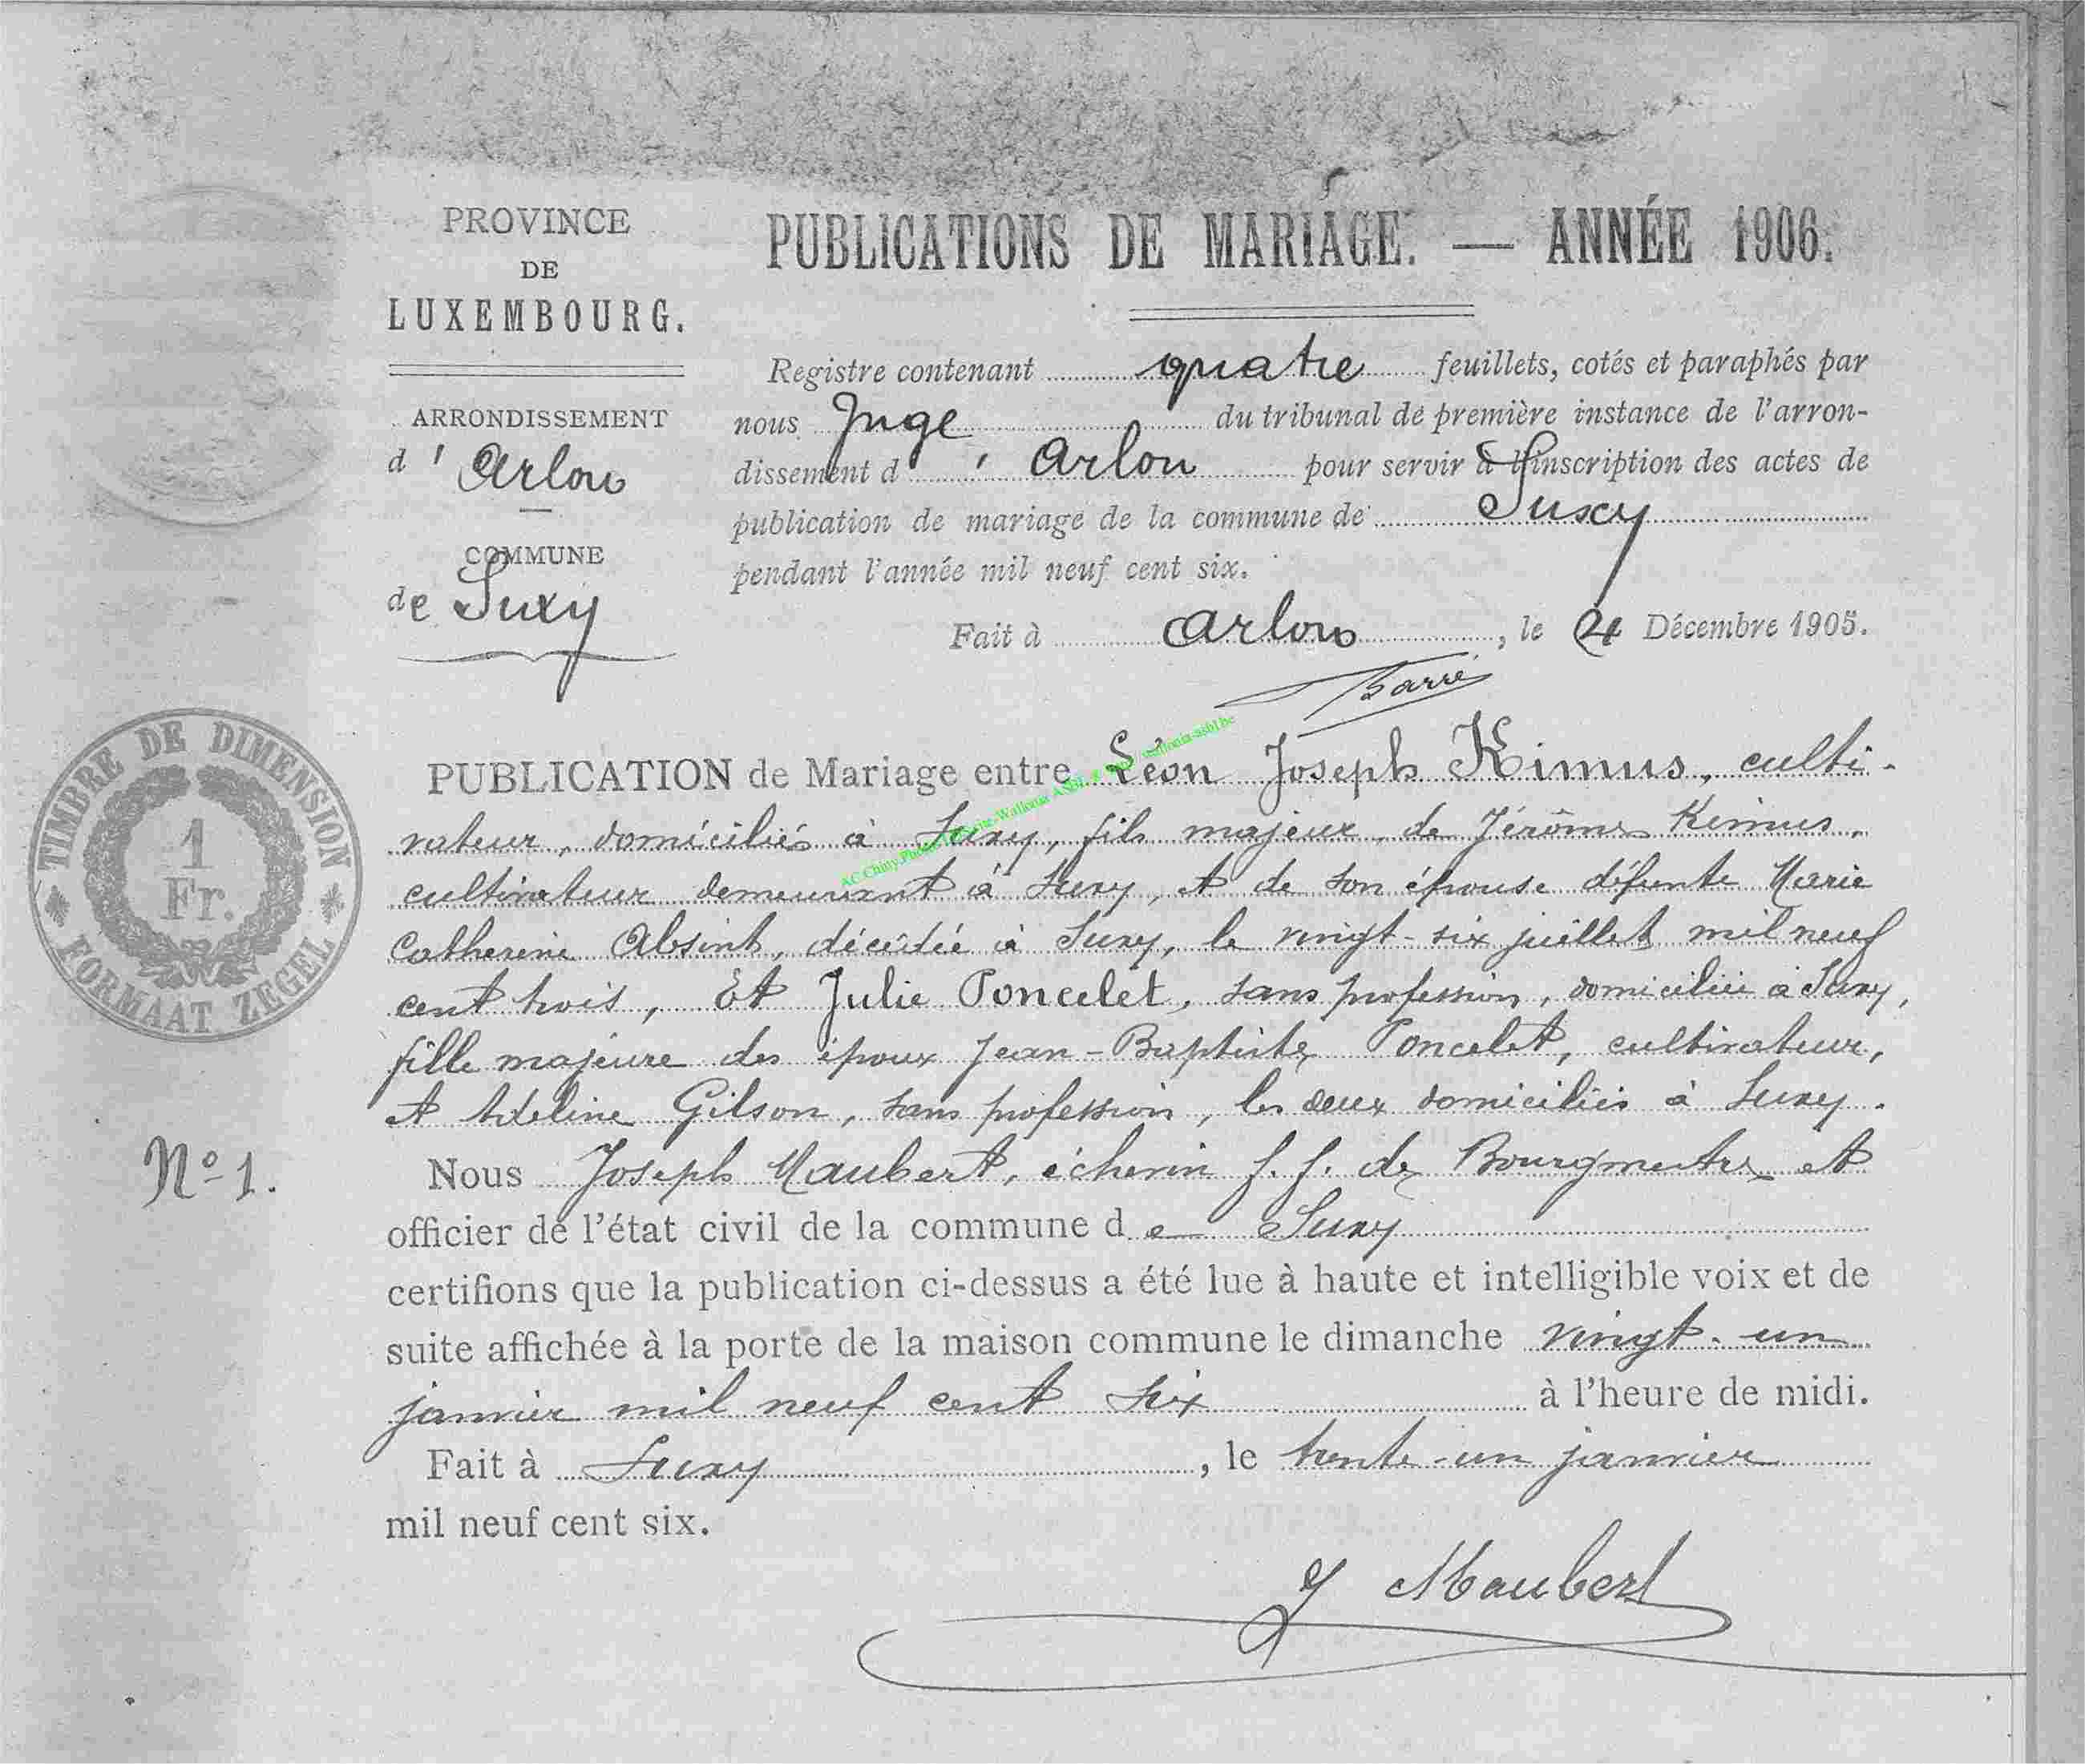 PROVINCE
DE
LUXEMBOURG.
ARRONDISSEMENT
d'Arlon
COMMUNE
de Suxy
PUBLICATIONS DE MARIAGE. — ANNÉE 1906.
Registre contenant quatre feuillets, cotés et paraphés par
nous Juge du tribunal de première instance de l'arron-
dissement d'Arlon pour servir à l'inscription des actes de
publication de mariage de la commune de Suxy
pendant l'année mil neuf cent six.
Fait à Arlon, le 21 Décembre 1905.
Barré
TIMBRE DE DIMENSION
1
Fr.
FORMAAT ZEGEL
PUBLICATION de Mariage entre Léon Joseph Kimus, culti-
vateur, domicilié à Suxy, fils majeur de Jérôme Kimus,
cultivateur demeurant à Suxy, et de son épouse défunte Marie
Catherine Absint, décédée à Suxy, le vingt-six juillet mil neuf
cent trois, Et Julie Poncelet, sans profession, domiciliée à Suxy,
fille majeure des époux Jean-Baptiste Poncelet, cultivateur,
et Adeline Gilson, sans profession, les deux domiciliés à Suxy.
Nº 1.
Nous Joseph Maubert, échevin f.f. de Bourgmestre et
officier de l'état civil de la commune de Suxy
certifions que la publication ci-dessus a été lue à haute et intelligible voix et de
suite affichée à la porte de la maison commune le dimanche vingt-un
janvier mil neuf cent six à l'heure de midi.
Fait à Suxy, le trente-un janvier
mil neuf cent six.
J Maubert